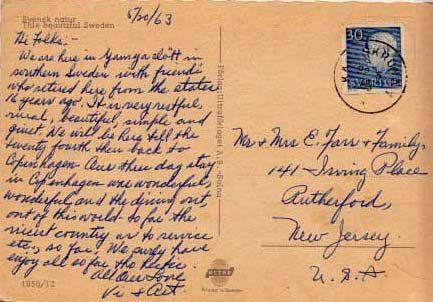 Svensk natur
This beautiful Sweden
5/20/63
Hi Folks; -
We are here in Yamgaslätt in
southern Sweden with friends
who retired here from the states
16 years ago. It is very restful,
rural, beautiful, simple and
quiet. We will be here till the
twenty fourth then back to
Copenhagen. Our three day stay
in Copenhagen was wonderful,
wonderful, and the dining out
out of this world so far the
nicest country as to service
etc., so far. We surely have
enjoy all so far
All Our Love
Vi & Art.
1050/12
Förlag Ultraförlaget A.B. - Solna
ULTRA
Printed in Sweden
30
SVERIGE
Mr & Mrs E. Farr & Family,
141 Irving Place
Rutherford,
New Jersey.
U.S.A